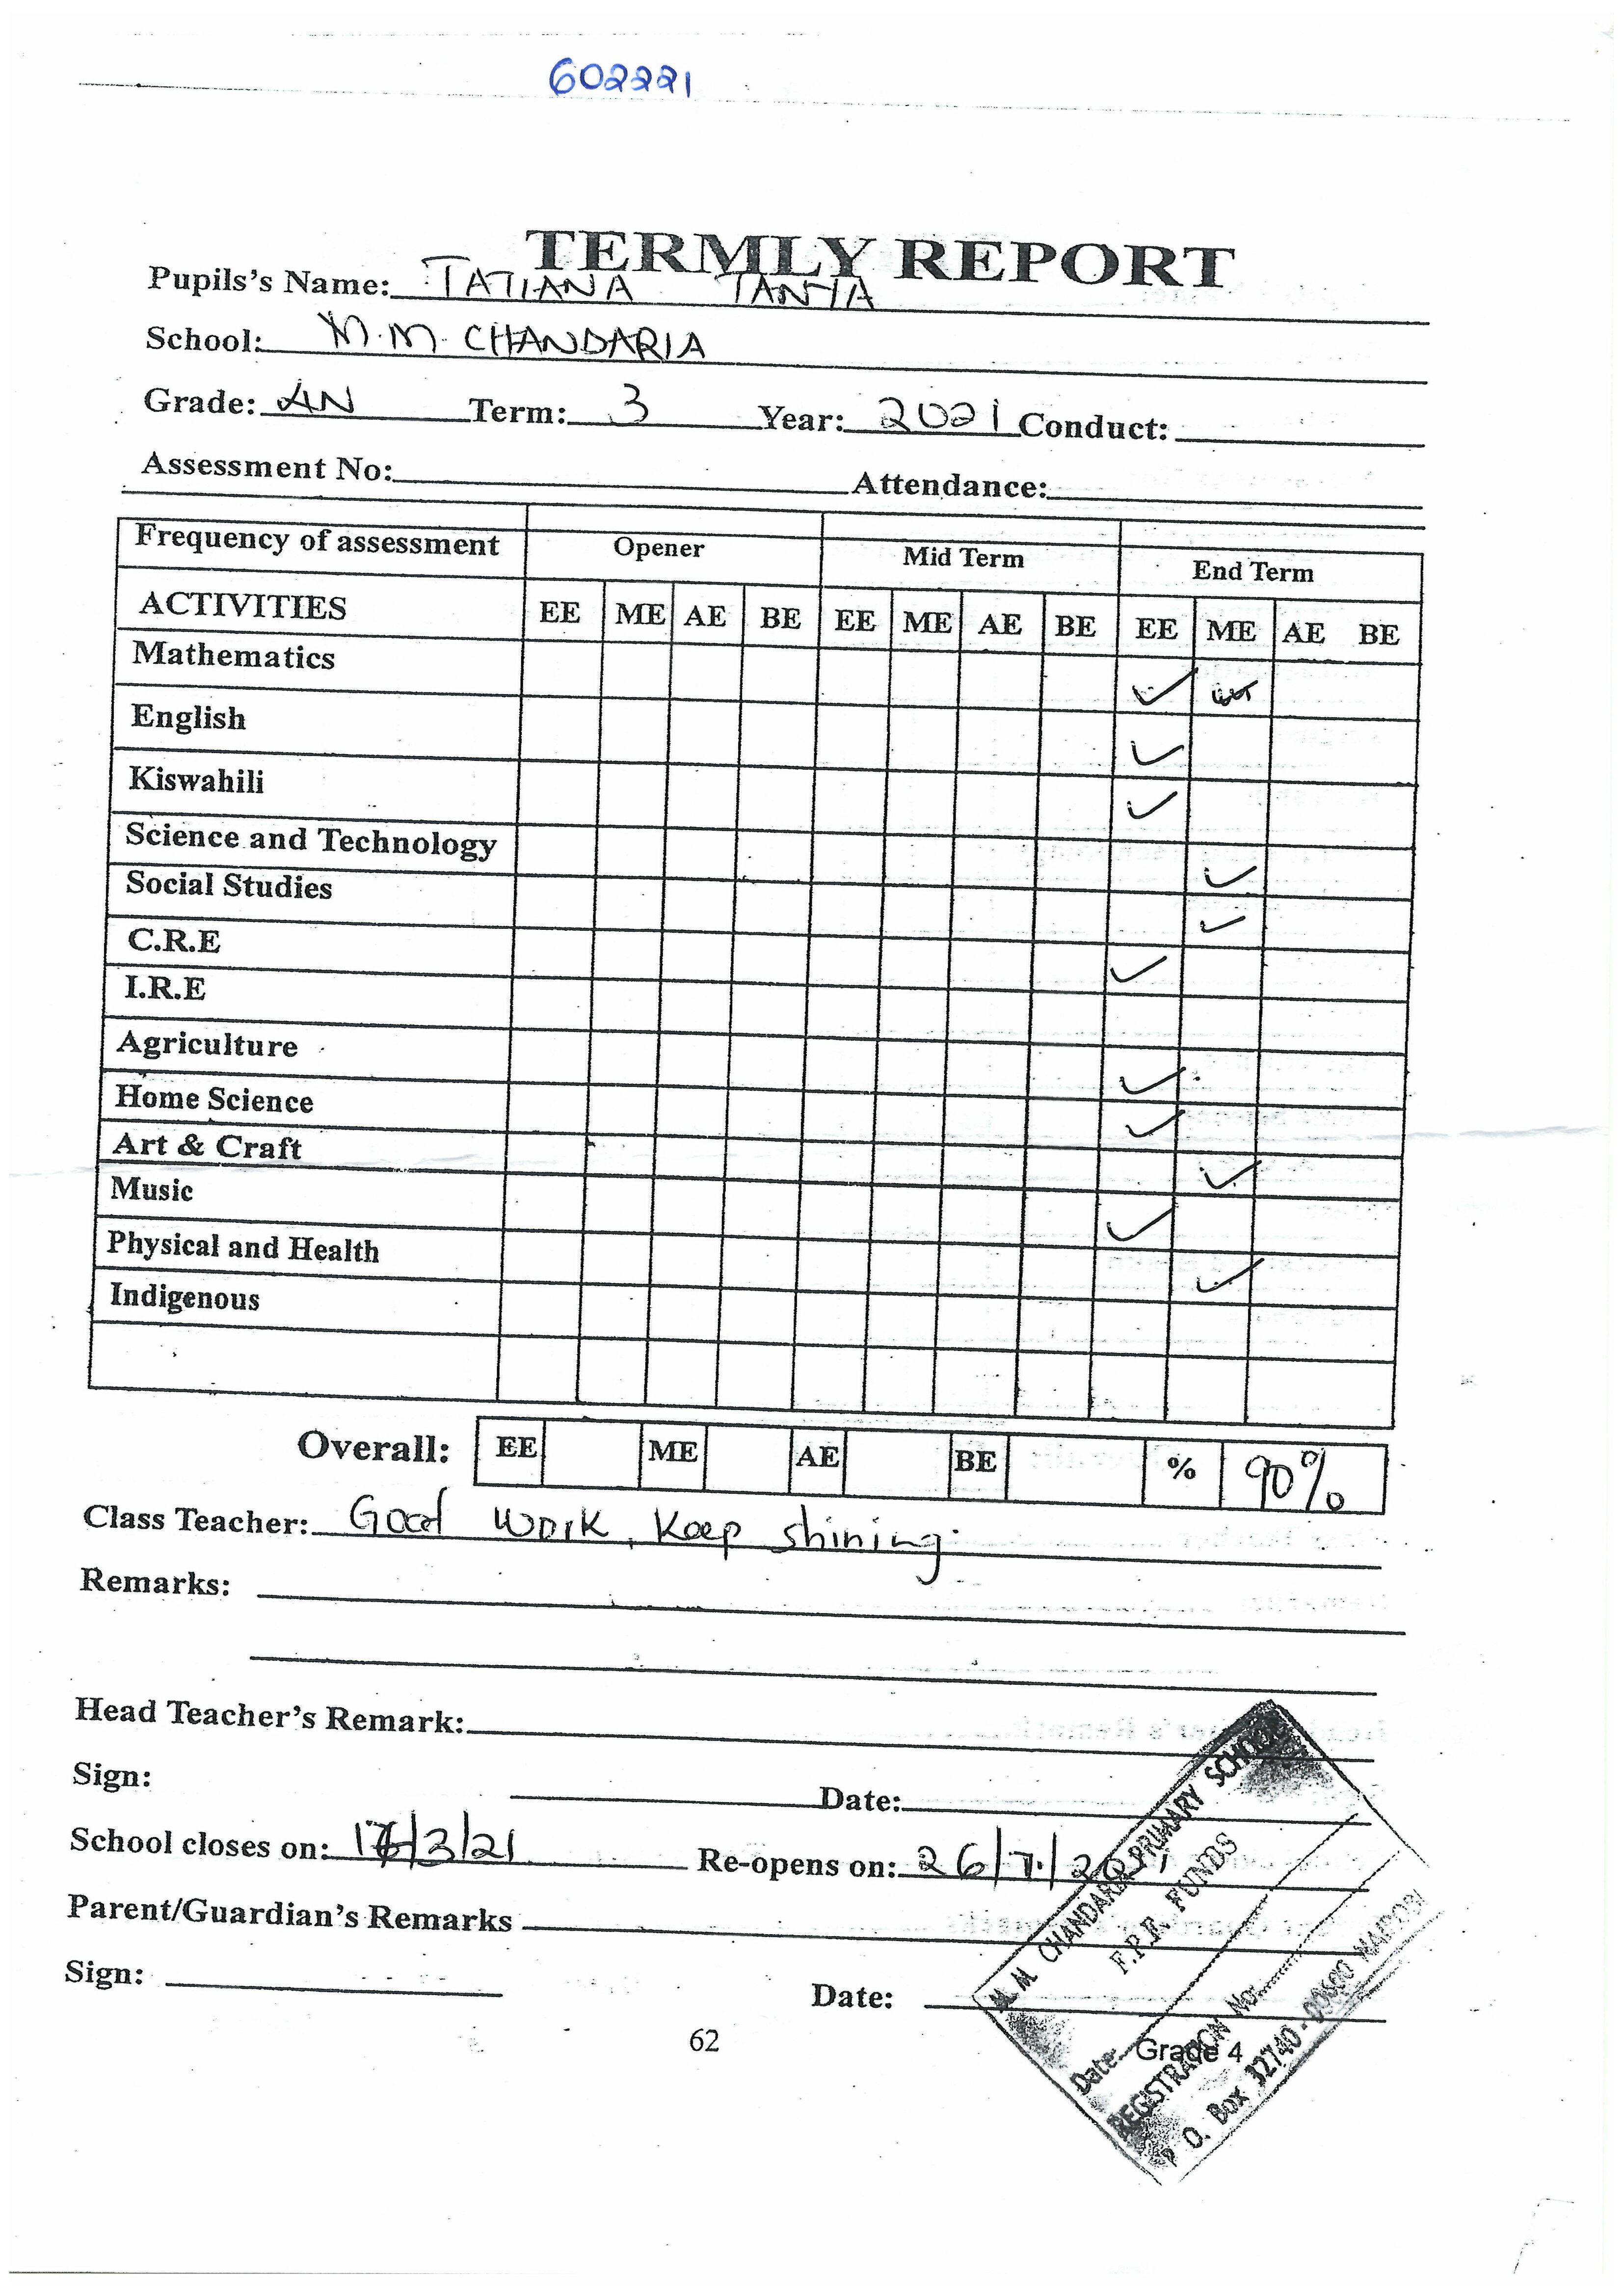 602221
TERMLY REPORT
Pupils's Name: TATIANA TANYA
School: M.M. CHANDARIA
Grade: 4N Term: 3 Year: 2021 Conduct:
Assessment No: Attendance:
Frequency of assessment Opener Mid Term End Term
ACTIVITIES EE ME AE BE EE ME AE BE EE ME AE BE
Mathematics ✓
English ✓
Kiswahili ✓
Science and Technology ✓
Social Studies ✓
C.R.E ✓
I.R.E
Agriculture ✓
Home Science ✓
Art & Craft ✓
Music ✓
Physical and Health ✓
Indigenous
Overall: EE ME AE BE % 90%
Class Teacher: Good work, Keep shining.
Remarks:
Head Teacher's Remark:
Sign: Date:
School closes on: /3/21 Re-opens on: 26/7/2021
Parent/Guardian's Remarks
Sign: Date:
62 Grade 4
M.M. CHANDARIA PRIMARY SCHOOL
F.P.E. FUNDS
Date:
REGISTRATION No:
P. O. Box 32740 - 00600 NAIROBI